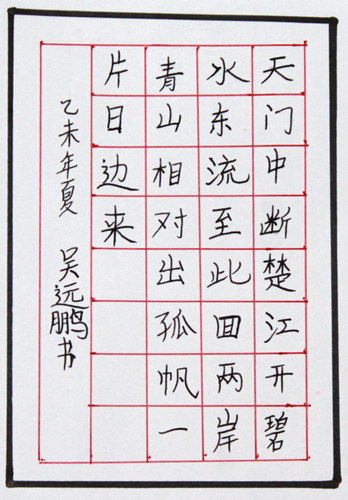 天门中断楚江开碧
水东流至此回两岸
青山相对出孤帆一
片日边来
乙未年夏 吴远鹏书